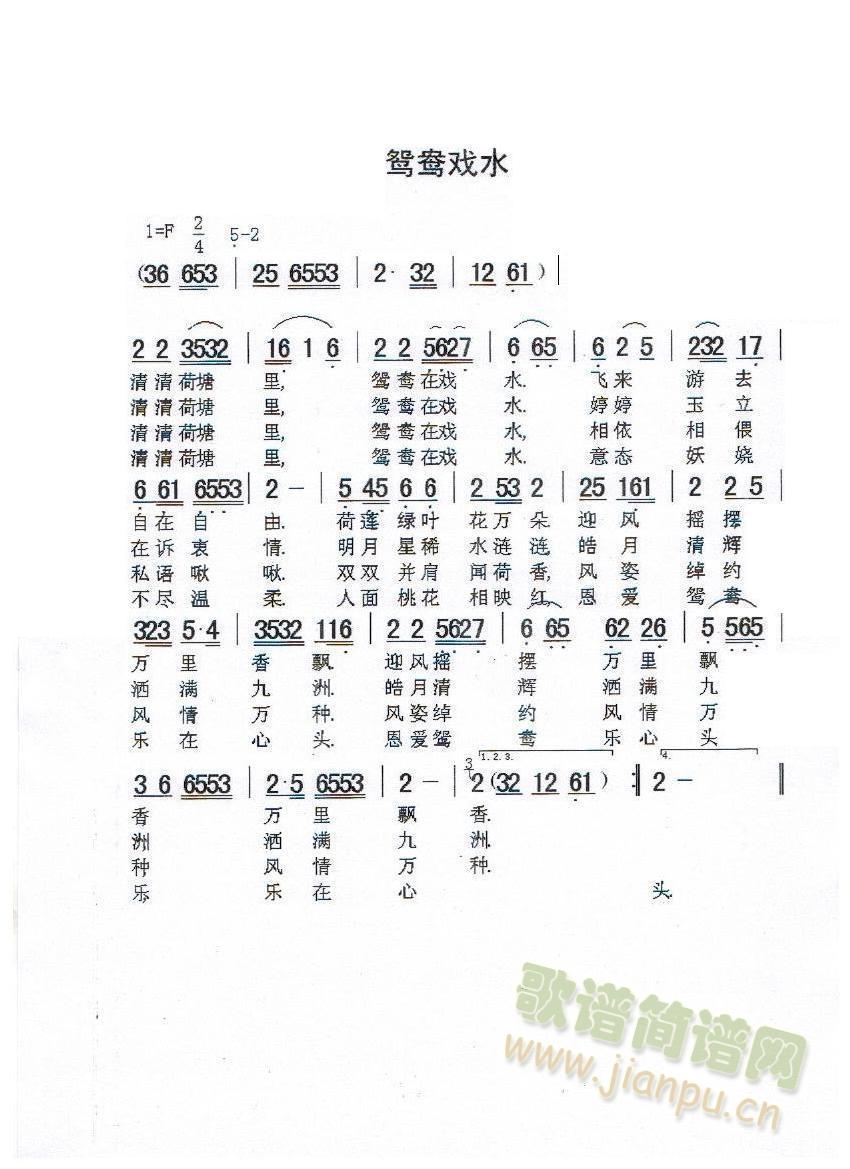 鸳鸯戏水
1=F 2/4 5-2
(36 653 | 25 6553 | 2· 32 | 12 61) |
2 2 3532 | 16 1 6 | 2 2 5627 | 6 65 | 6 2 5 | 232 17 |
清清荷塘 里, 鸳鸯在戏 水. 飞来 游 去
清清荷塘 里, 鸳鸯在戏 水. 婷婷 玉 立
清清荷塘 里, 鸳鸯在戏 水, 相依 相 偎
清清荷塘 里, 鸳鸯在戏 水. 意态 妖 娆
6 61 6553 | 2 － | 5 45 6 6 | 2 53 2 | 25 161 | 2 2 5 |
自在自 由. 荷莲绿叶 花万朵 迎 风 摇 摆
在诉衷 情. 明月星稀 水涟涟 皓 月 清 辉
私语啾 啾. 双双并肩 闻荷香, 风 姿 绰 约
不尽温 柔. 人面桃花 相映红 恩 爱 鸳 鸯
323 5·4 | 3532 116 | 2 2 5627 | 6 65 62 26 | 5 565 |
万 里 香 飘. 迎风摇 摆 万 里 飘
洒 满 九 洲. 皓月清 辉 洒 满 九
风 情 万 种. 风姿绰 约 风 情 万
乐 在 心 头. 恩爱鸳 鸯 乐 心 头
1.2.3. 4.
3 6 6553 | 2·5 6553 | 2 － | 3 2 (32 12 61) :‖ 2 － ‖
香 万 里 飘 香.
洲 洒 满 九 洲.
种 风 情 万 种.
乐 乐 在 心 头.
歌谱简谱网
www.jianpu.cn